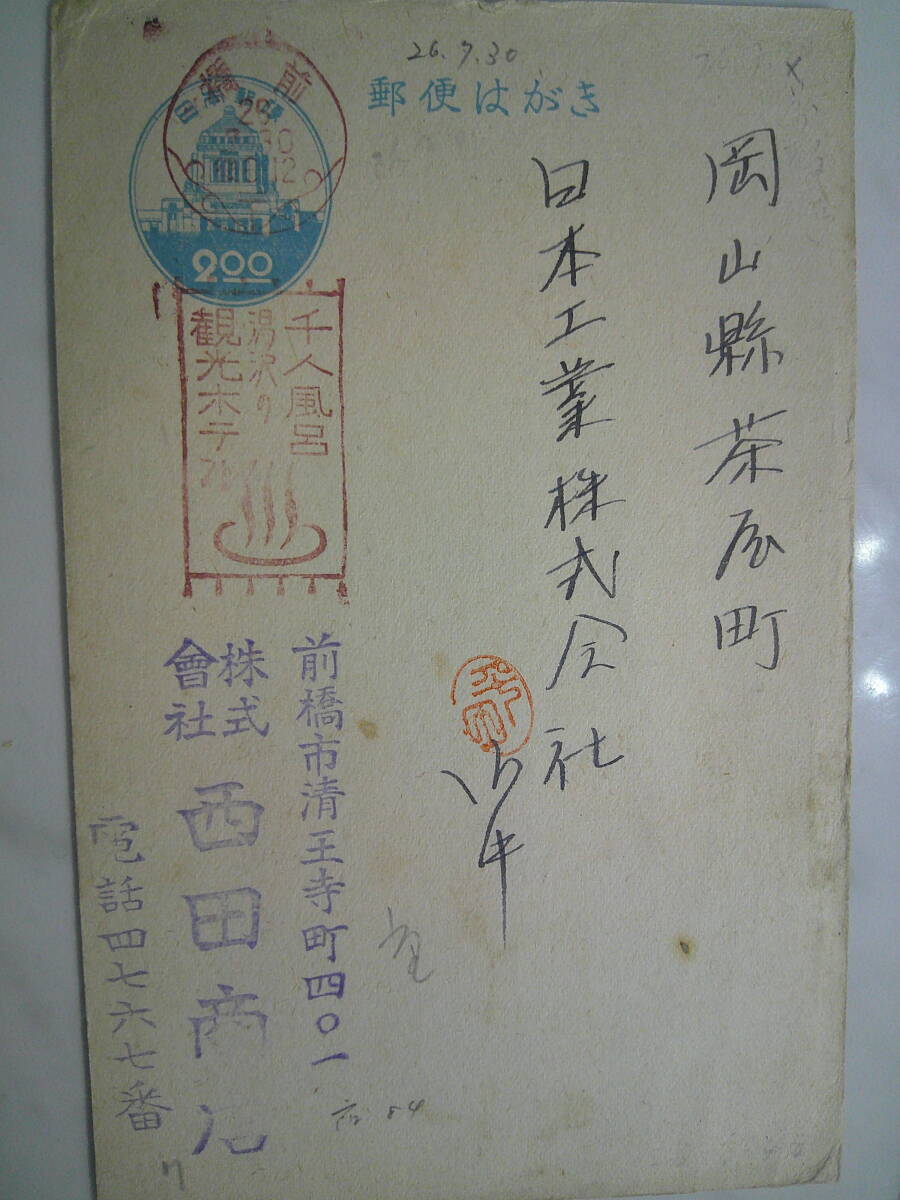 26.7.30
郵便はがき
前橋
26
7.30
0-12
2.00
岡山縣茶屋町
日本工業株式会社
御中
千人風呂
湯沢の
観光ホテル
前橋市清王寺町四〇一
株式會社
西田商店
電話四七六七番